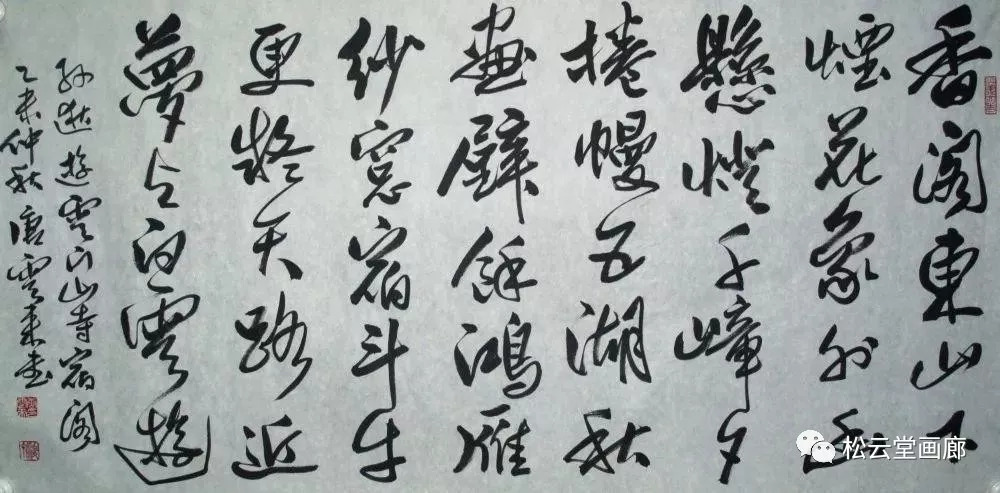 香閣東山下
煙花象外幽
懸燈千嶂夕
捲幔五湖秋
畫壁餘鴻雁
紗窗宿斗牛
更疑天路近
夢与白雲遊
孫逖遊雲门山寺宿阁
乙未仲秋唐雲来书
松云堂画廊